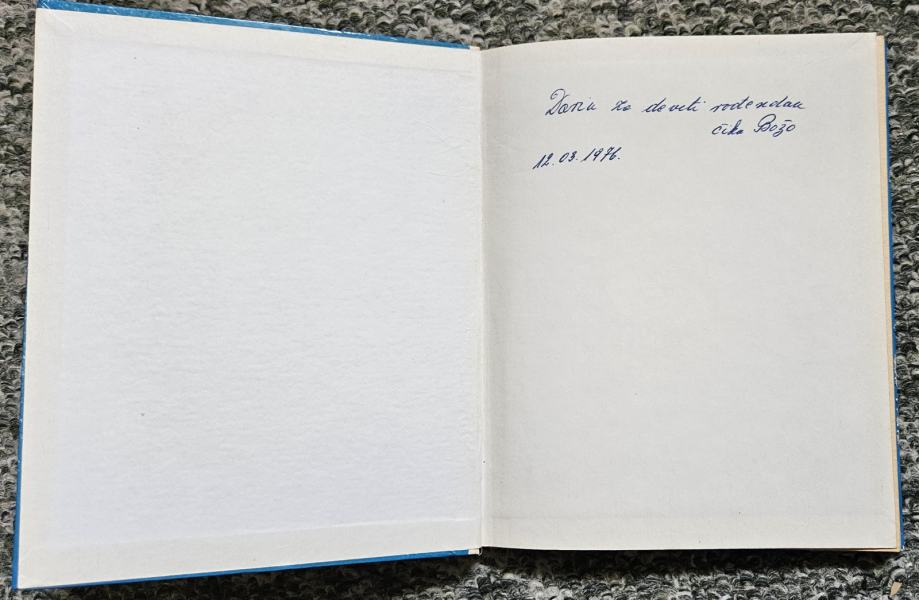 Dariu za deveti rođendan
čika Božo
12.03.1976.